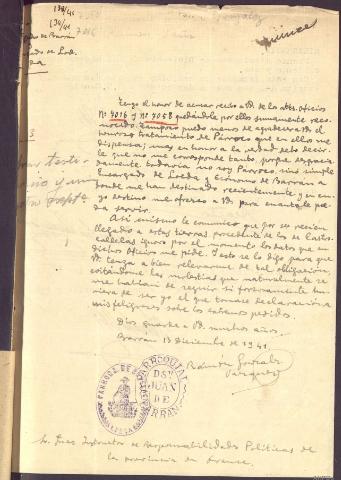 138/41
139/41
de Barrán
de Loe
quince
Tengo el honor de acusar recibo a Vd. de los atts. oficios
Nº 7016 y Nº 7058 quedándole por ellos sumamente reco-
nocido. Tampoco puedo menos de agradecer a Vd. el
honroso tratamiento de Párroco que en ellos me
dispensa; mas en honor a la verdad debo decir-
le que no me corresponde tanto, porque desgracia-
damente todavía no soy Párroco, sino simple
Encargado de Loeda y Ecónomo de Barrán a
donde me han destinado recientemente y en cu-
yo destino me ofrezco a Vd. para cuanto le pue-
da servir.
Así mismo le comunico que por ser recien
llegado a estas tierras procedente de las de Castro
Caldelas ignoro por el momento los datos que en
dichos oficios me pide. Y esto se lo digo para que
Vd. tenga a bien relevarme de tal obligación,
evitándome las molestias que naturalmente se
me habían de seguir si forzosamente hu-
biera de ser yo el que tomase declaración a
mis feligreses sobre los informes pedidos.
Dios guarde a Vd. muchos años.
Barrán 13 Diciembre de 1941
Ramón González
Vázquez
PARROQUIA DE
PARROQUIA
D SN
JUAN
DE
BARRAN
Sr. Juez Instructor de Responsabilidades Políticas de
la provincia de Orense.